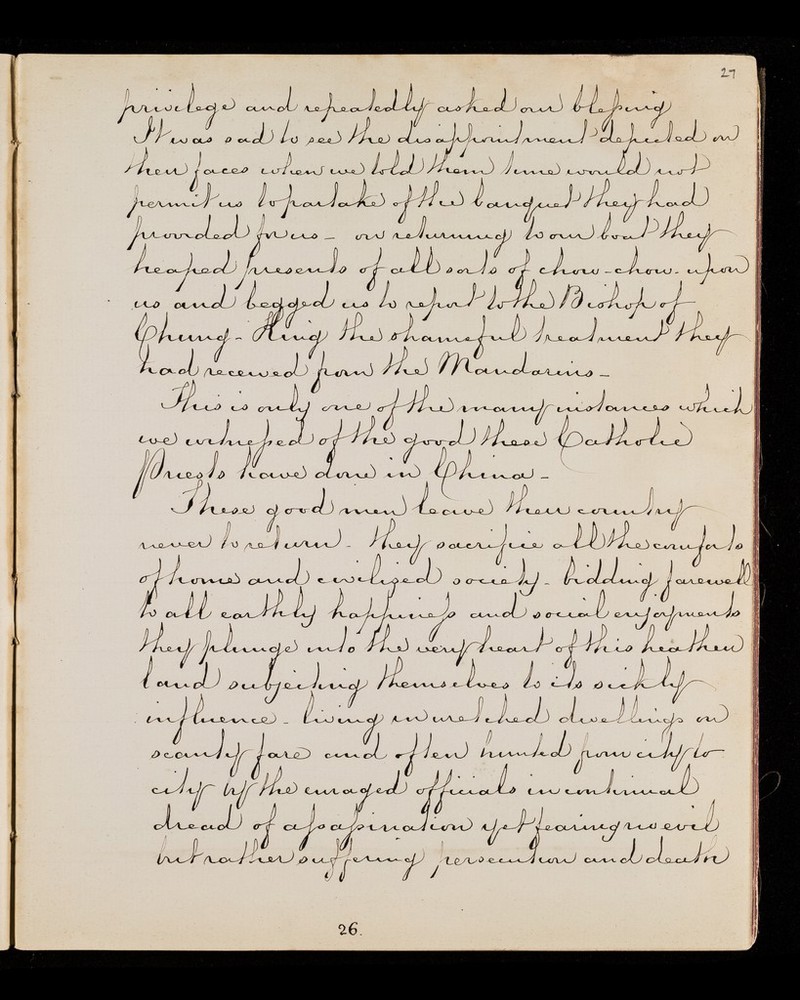 27
privilege and repeatedly asked our blessing
It was sad to see the disappointment depicted on
their faces when we told them time would not
permit us to partake of the banquet they had
provided for us - on returning to our boat they
heaped presents of all sorts of chow-chow - upon
us and begged us to report to the Bishop of
Chung-King the shameful treatment they
had received from the Mandarins -
This is only one of the many instances which
we witnessed of the good these Catholic
Priests have done in China -
These good men leave their country
never to return - they sacrifice all the comforts
of home and civilized society - bidding farewell
to all earthly happiness and social enjoyments
they plunge into the very heart of this heathen
land subjecting themselves to its sickly
influence - living in wretched dwellings on
scanty fare and often hunted from city to
city by the enraged officials in continual
dread of assassination yet fearing no evil
but rather suffering persecution and death
26.